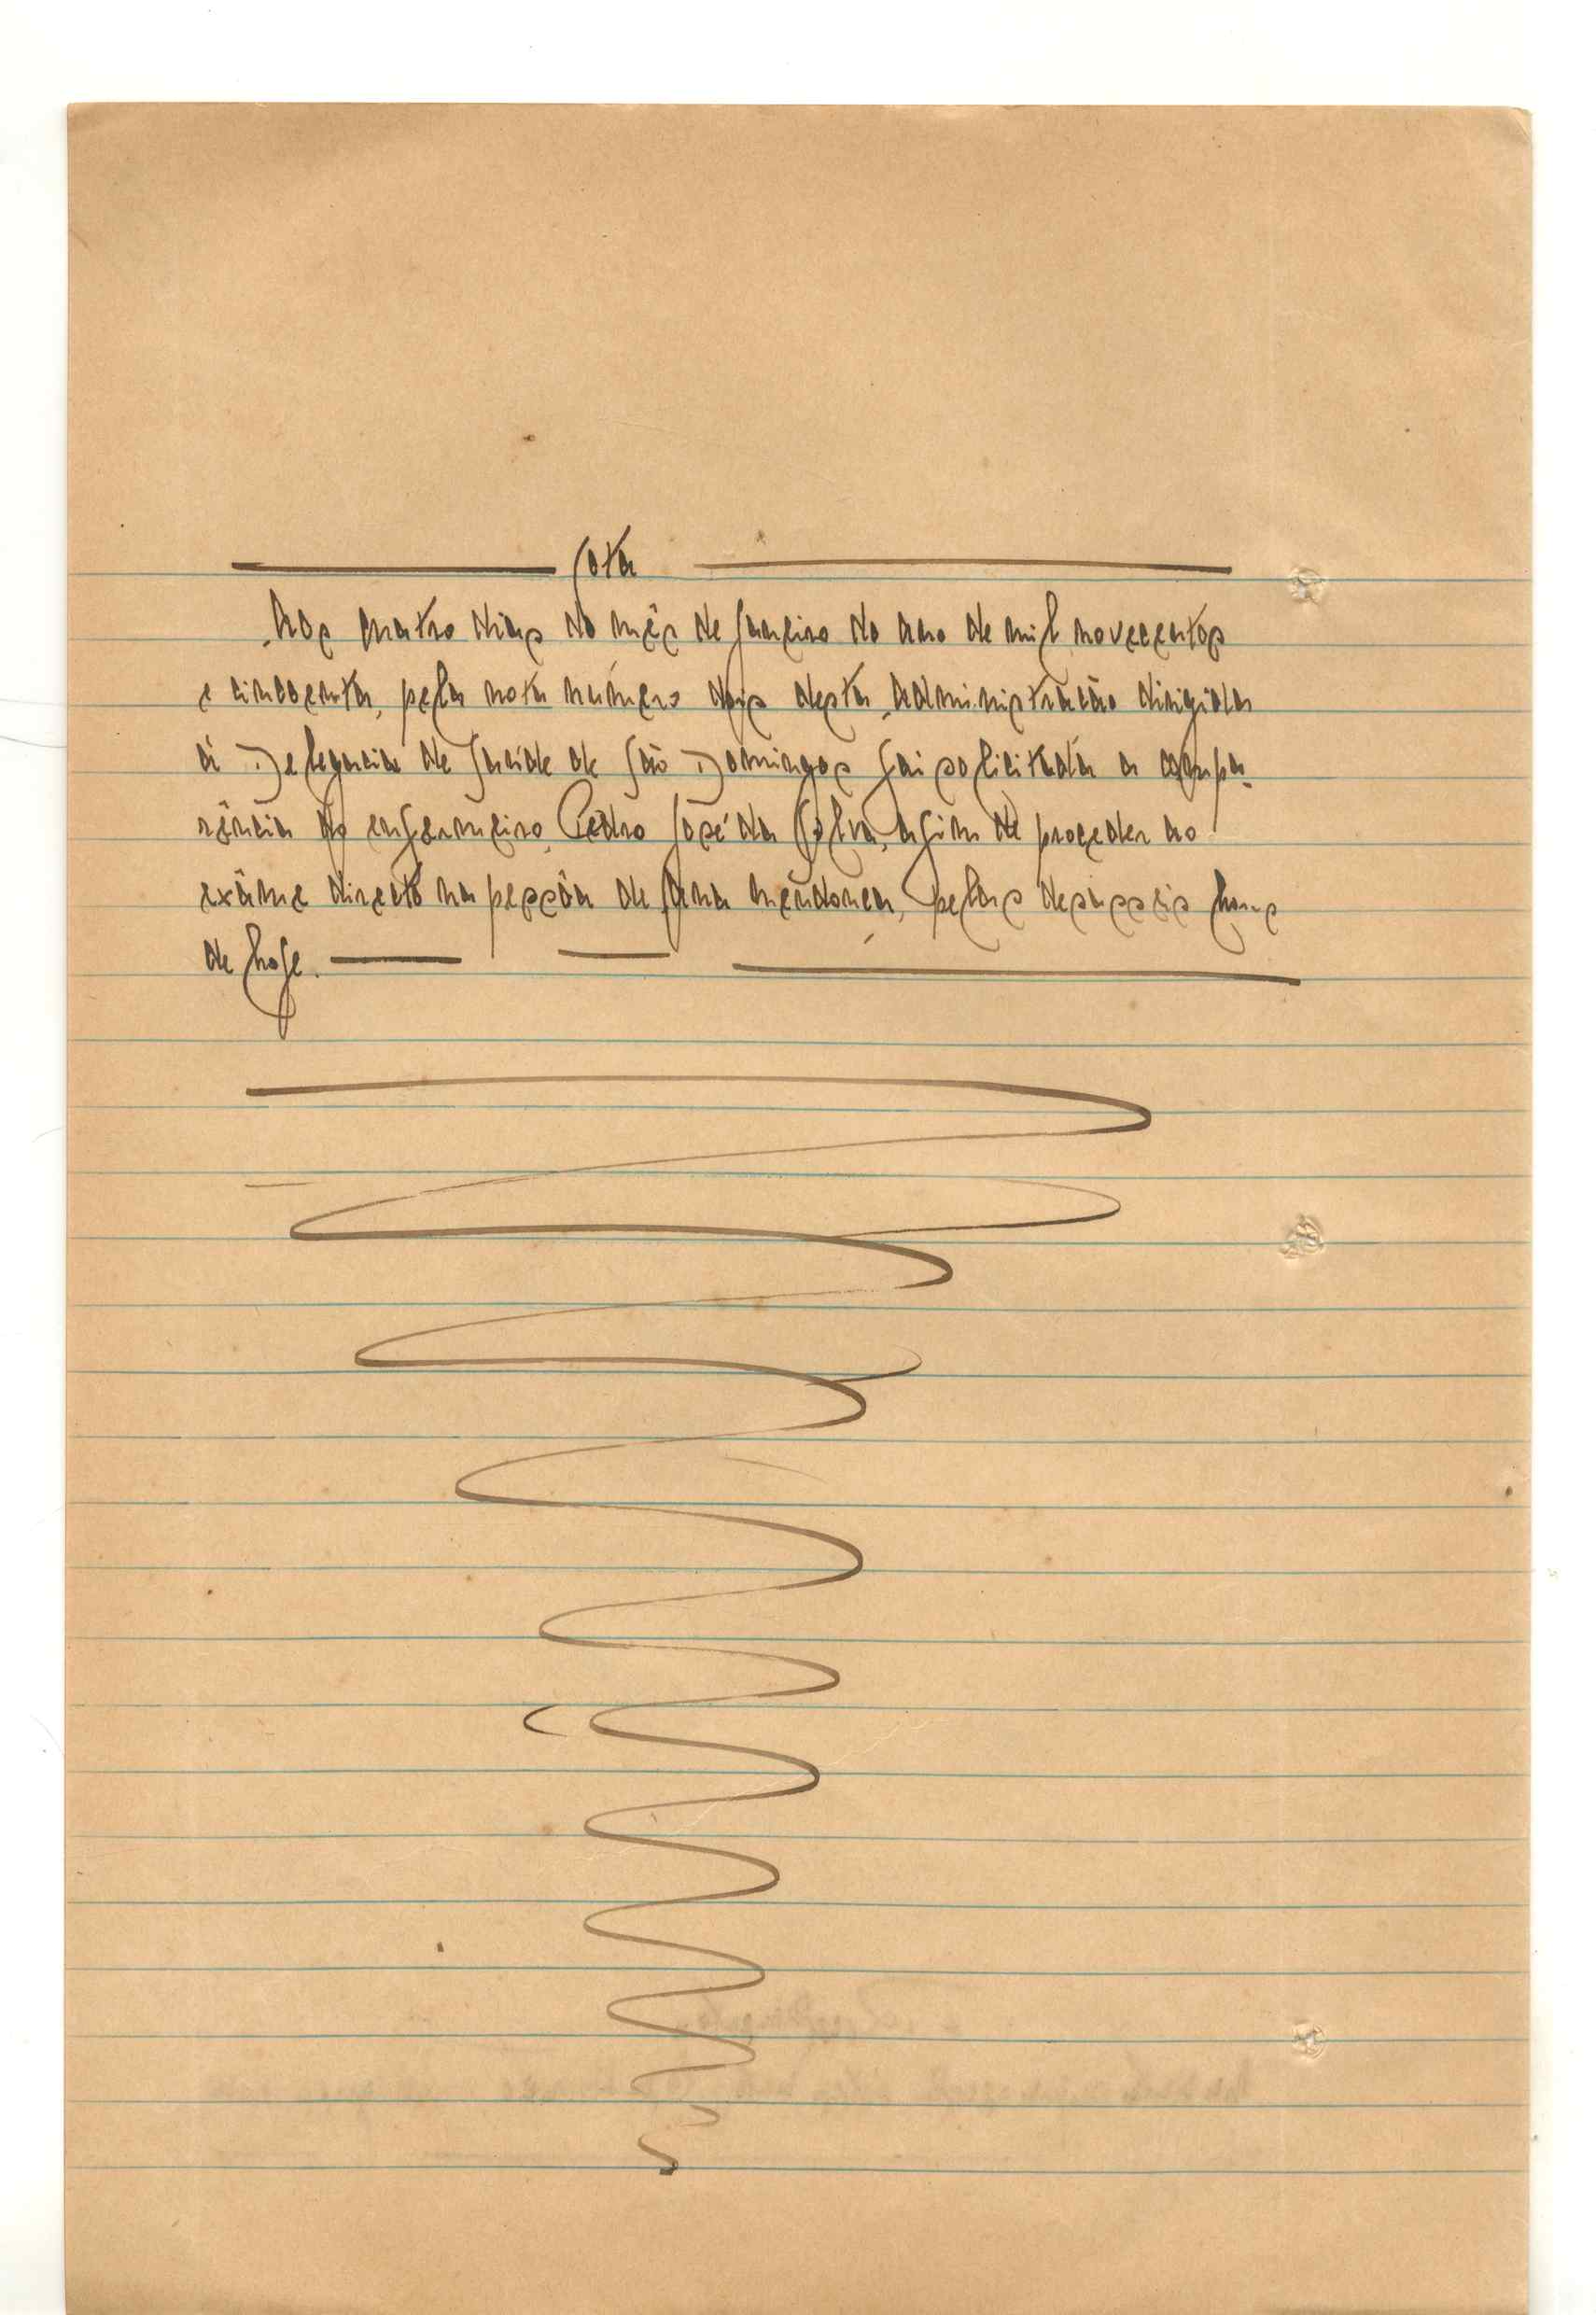 Cota
Aos quatro dias do mês de Janeiro do ano de mil novecentos
e cincoenta, pela nota número dois desta Administracão dirigida
á Delegacia de Saúde de São Domingos foi solicitada a compa-
rência do enfermeiro Pedro José da Silva, afim de proceder ao
exâme directo na pessôa de Mendonca, pelas desasseis horas
de hoje.